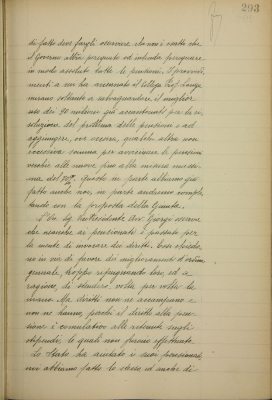 293
di fatto deve fargli osservare che non è esatto che
il Governo abbia perequato od intenda perequare
in modo assoluto tutte le pensioni. I provvedi
menti a cui ha accennato il collega Prof.
mirano soltanto a salvaguardare il miglior
uso dei 90 milioni già accantonati per la ri
soluzione del problema delle pensioni e ad
aggiungere, ove occorra, qualche altra non
eccessiva somma per avvicinare le pensioni
vecchie alle nuove fino alla misura massi
ma del %. Questo in parte abbiamo già
fatto anche noi, in parte andremo comple
tando con la proposta della Giunta.
L'On. Sig. Vice Presidente Avv. osserva
che neanche ai pensionati è passato per
la mente di invocare dei diritti. Essi
no in via di favore dei miglioramenti d'ordine
generale, troppo ripugnando loro, ed a
ragione, di stendere, volta per volta la
mano. Ma diritti non ne accampano e
non ne hanno, perchè il diritto alla pen
sione è correlativo alle ritenute sugli
stipendi, le quali non furono effettuate.
Lo Stato ha aiutato i suoi pensionati,
noi abbiamo fatto lo stesso ed anche di